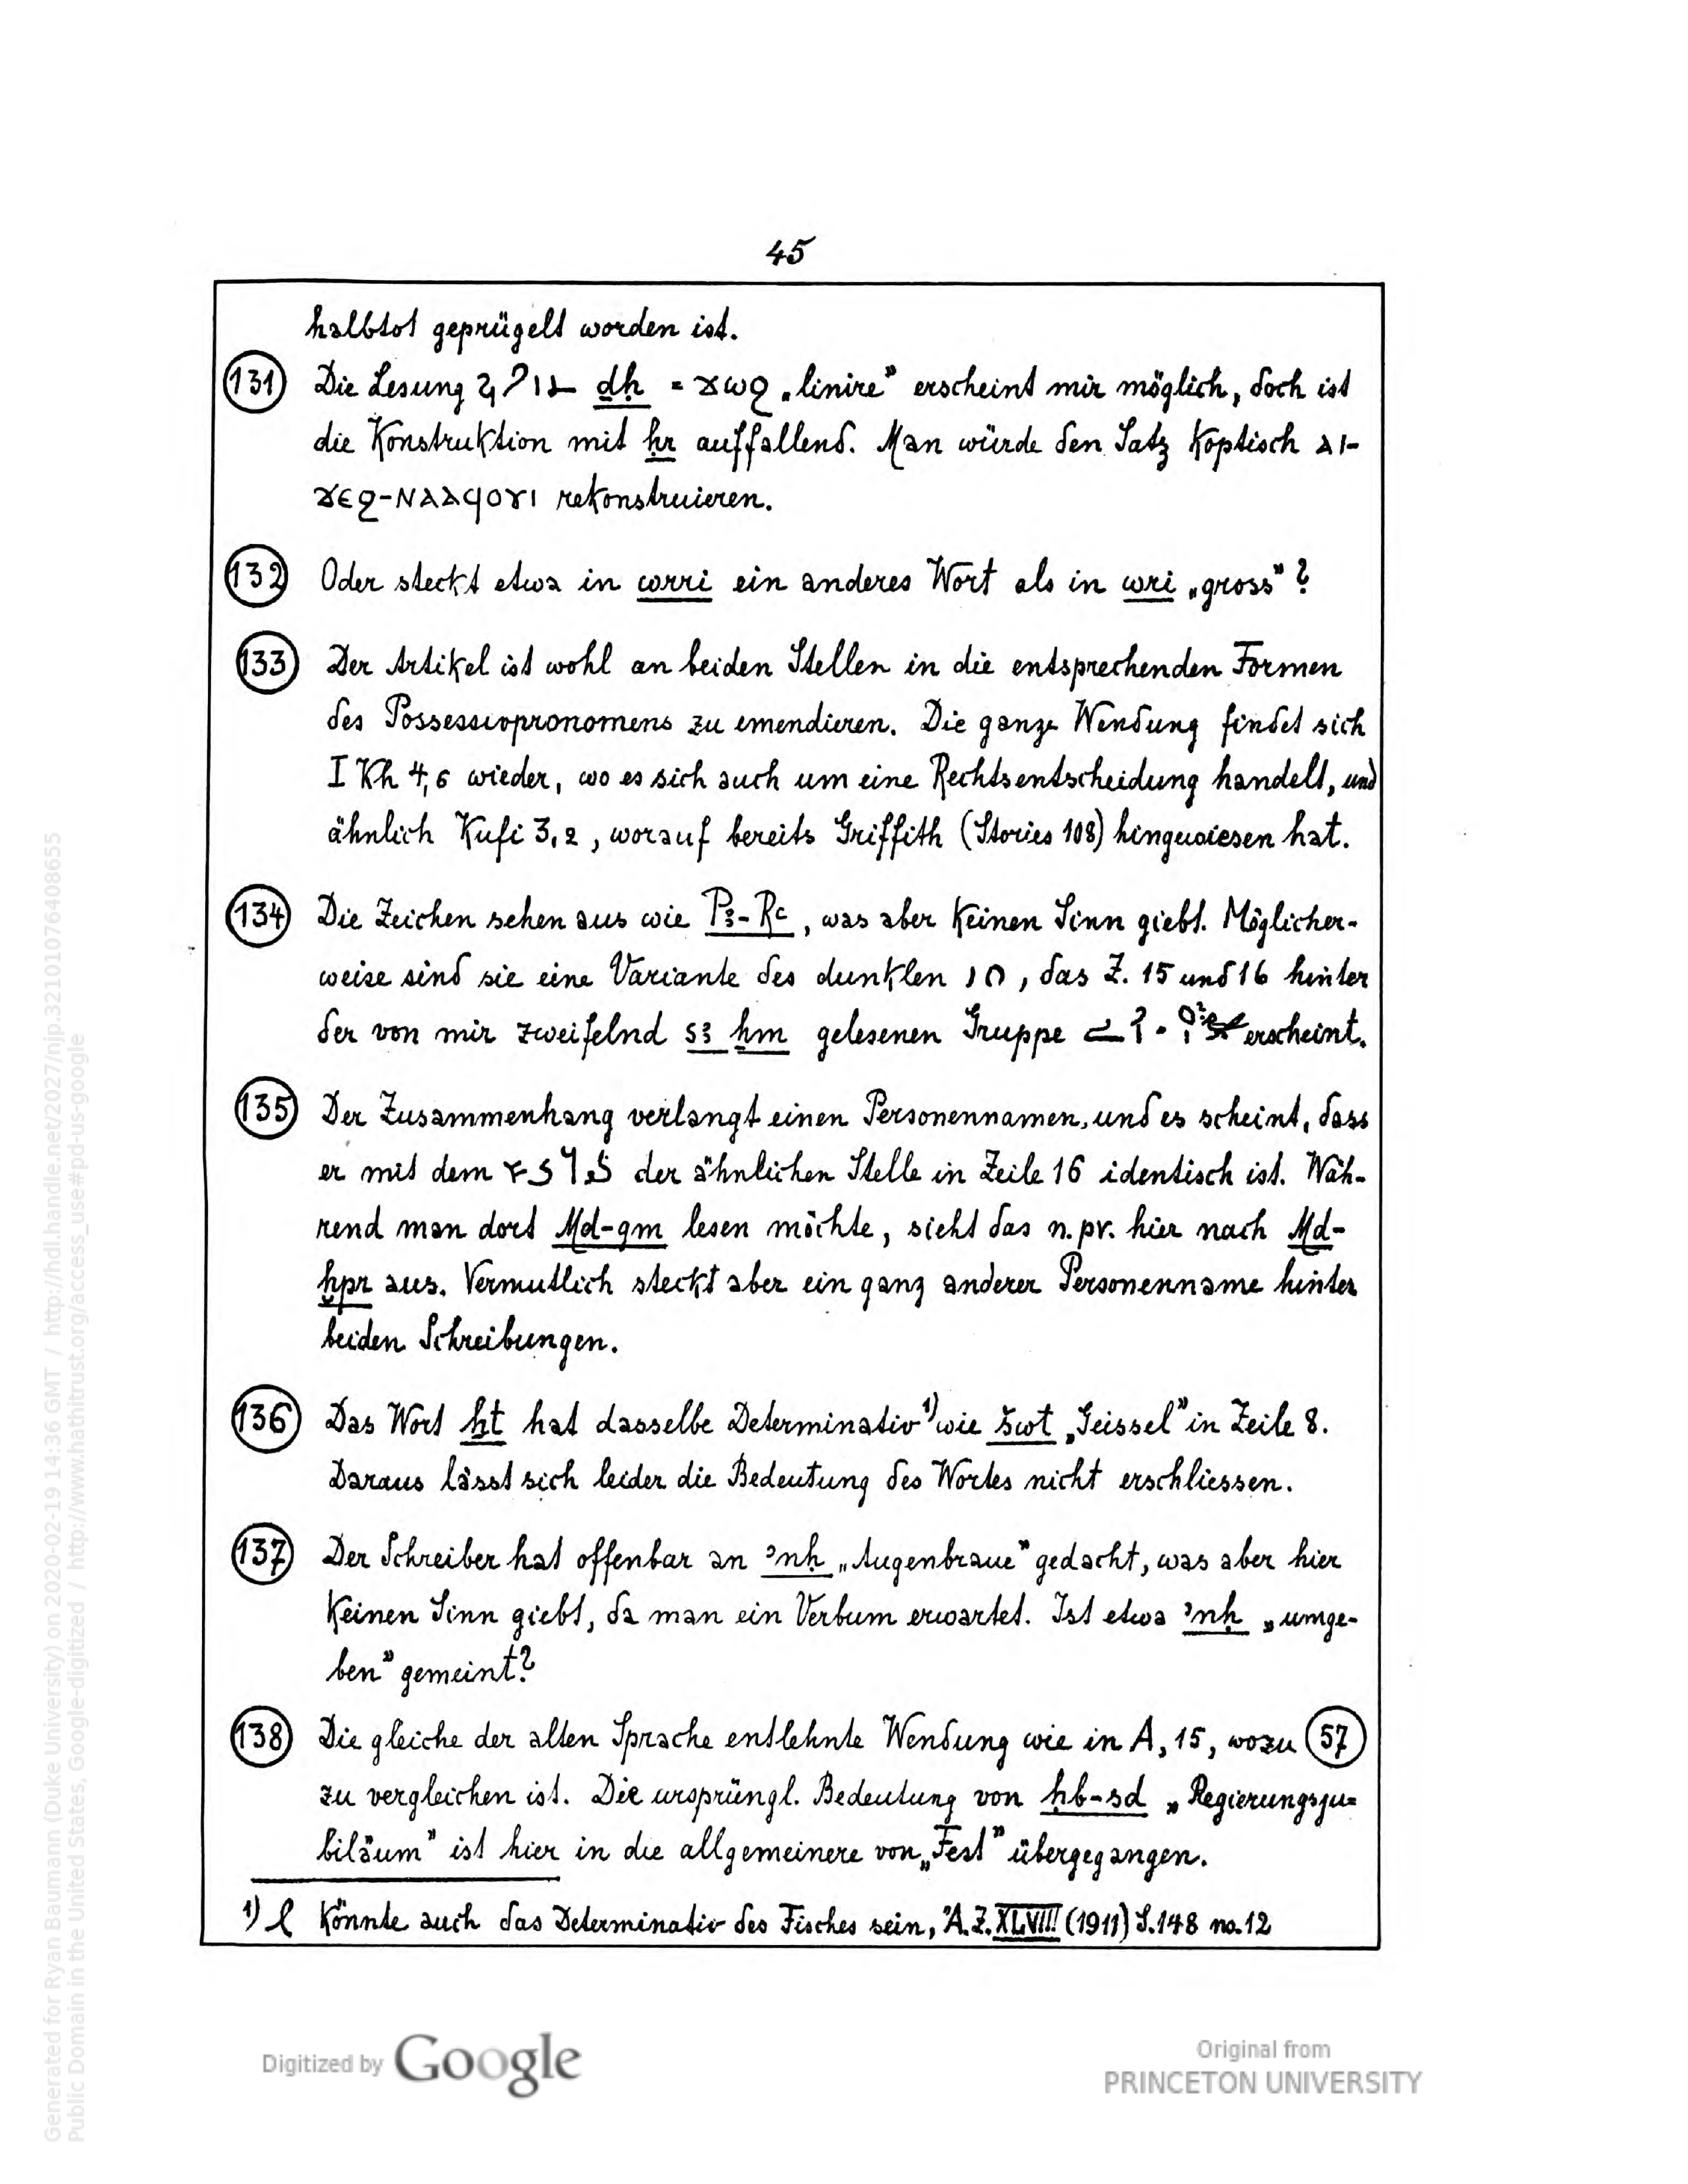 45
halbtot geprügelt worden ist.
(131) Die Lesung ḏḥ = ϫⲱϩ „linire” erscheint mir möglich, doch ist
die Konstruktion mit ḥr auffallend. Man würde den Satz Koptisch ⲁⲓ-
ϫⲉϩ-ⲛⲁⲁϥⲟⲩⲓ rekonstruieren.
(132) Oder steckt etwa in wrri ein anderes Wort als in wri „gross”?
(133) Der Artikel ist wohl an beiden Stellen in die entsprechenden Formen
des Possessivpronomens zu emendieren. Die ganze Wendung findet sich
I Kh 4,6 wieder, wo es sich auch um eine Rechtsentscheidung handelt, und
ähnlich Kufi 3,2, worauf bereits Griffith (Stories 108) hingewiesen hat.
(134) Die Zeichen sehen aus wie Pꜣ-Rꜥ, was aber Keinen Sinn giebt. Möglicher-
weise sind sie eine Variante des dunklen, das Z. 15 und 16 hinter
der von mir zweifelnd sꜣ ḥm gelesenen Gruppe erscheint.
(135) Der Zusammenhang verlangt einen Personennamen, und es scheint, dass
er mit dem der ähnlichen Stelle in Zeile 16 identisch ist. Wäh-
rend man dort Md-gm lesen möchte, sieht das n.pr. hier nach Md-
ḫpr aus. Vermutlich steckt aber ein ganz anderer Personenname hinter
beiden Schreibungen.
(136) Das Wort ḫt hat dasselbe Determinativ¹⁾ wie šwt „Geissel” in Zeile 8.
Daraus lässt sich leider die Bedeutung des Wortes nicht erschliessen.
(137) Der Schreiber hat offenbar an ꜣnḥ „Augenbraue” gedacht, was aber hier
Keinen Sinn giebt, da man ein Verbum erwartet. Ist etwa ꜣnḥ „umge-
ben” gemeint?
(138) Die gleiche der alten Sprache entlehnte Wendung wie in A, 15, wozu (57)
zu vergleichen ist. Die ursprüngl. Bedeutung von ḥb-sd „Regierungsju=
biläum” ist hier in die allgemeinere von „Fest” übergegangen.
1) Könnte auch das Determinativ des Fisches sein, Ä.Z. XLVIII (1911) S.148 no.12
Digitized by Google
Original from
PRINCETON UNIVERSITY
Generated for Ryan Baumann (Duke University) on 2020-02-19 14:36 GMT / http://hdl.handle.net/2027/njp.32101076408655
Public Domain in the United States, Google-digitized / http://www.hathitrust.org/access_use#pd-us-google